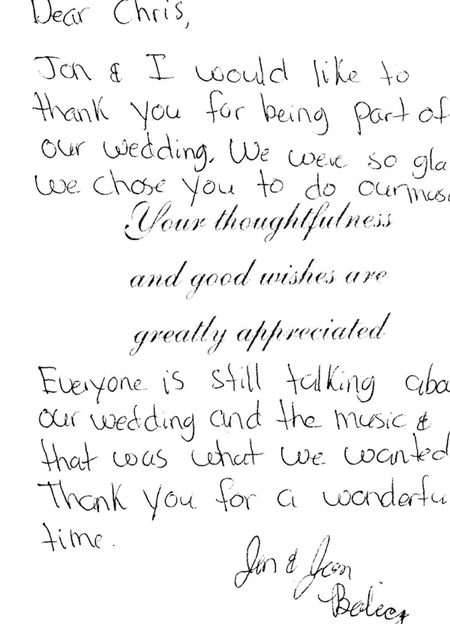 Dear Chris,
Jon & I would like to
thank you for being part of
our wedding. We were so gla
we chose you to do our musi
Your thoughtfulness
and good wishes are
greatly appreciated
Everyone is still talking abo
our wedding and the music &
that was what we wanted
Thank you for a wonderfu
time.
Jon & Jean